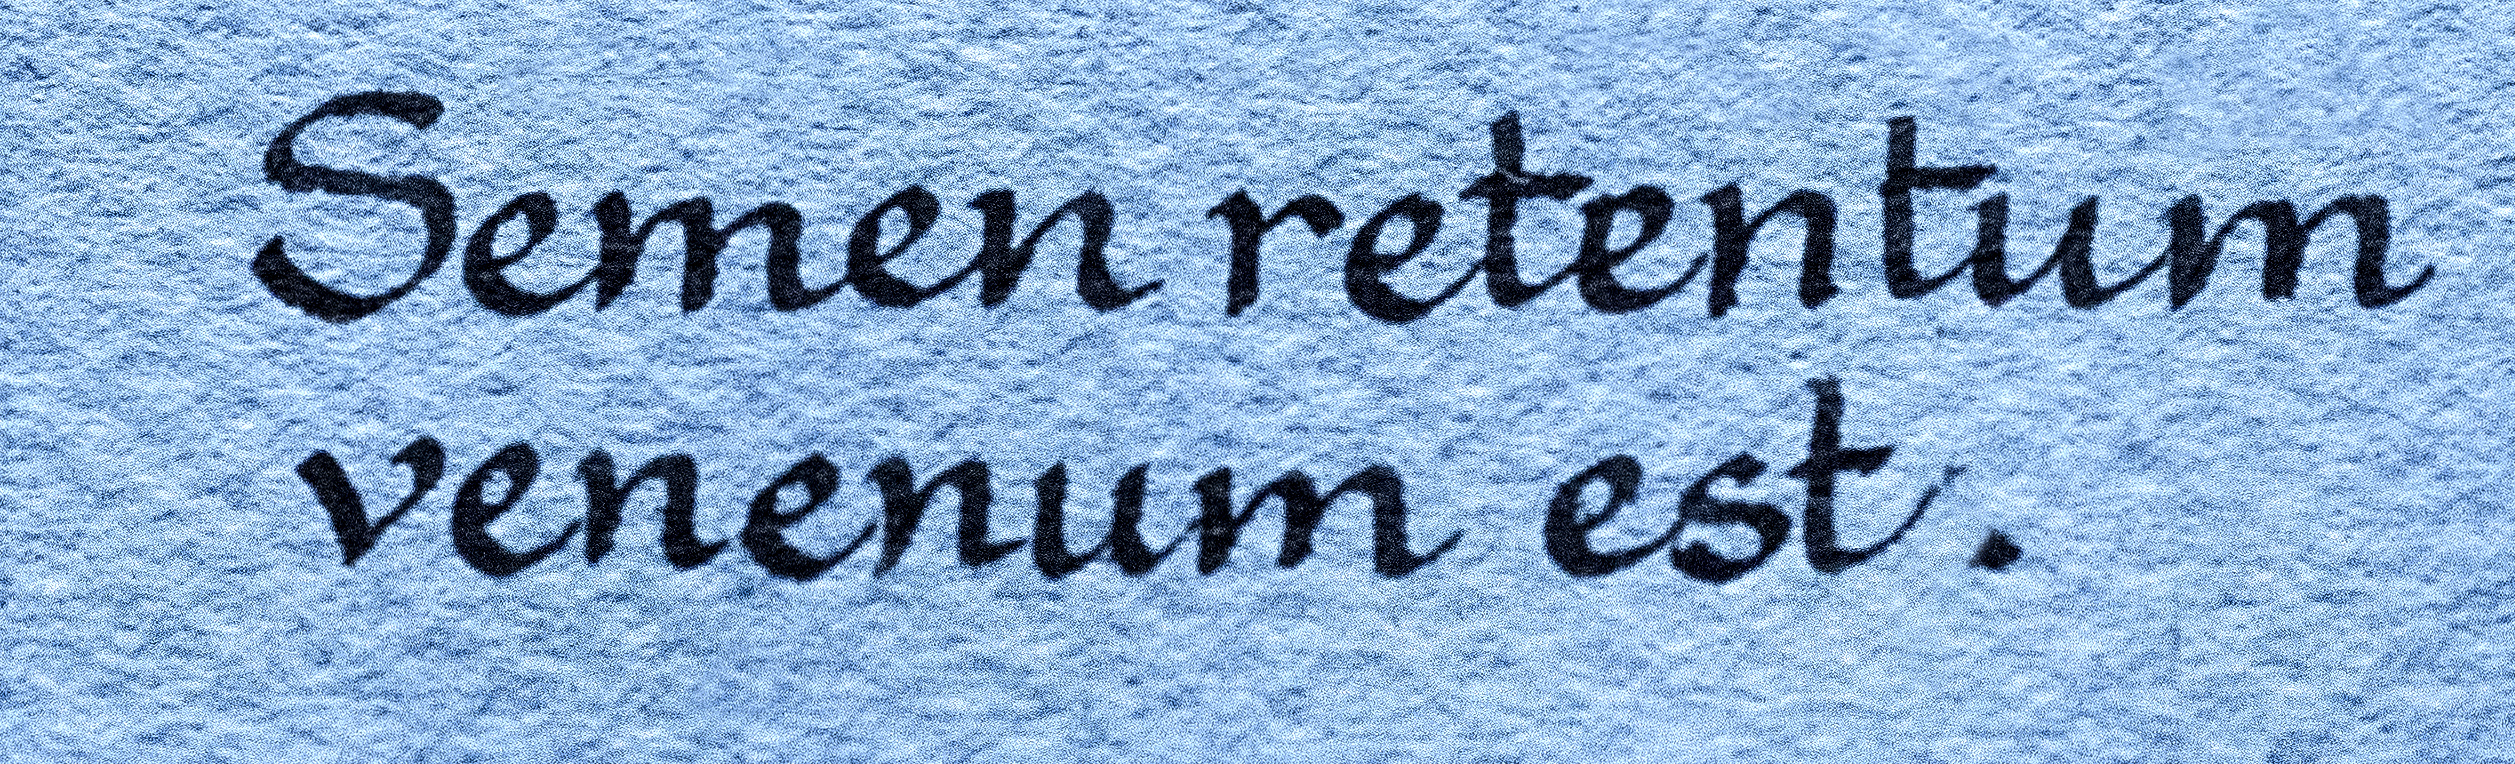 Semen retentum
venenum est.